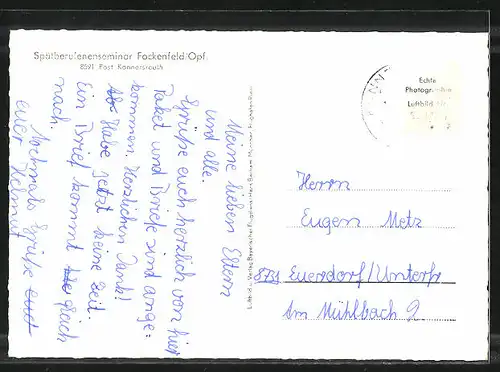 Spätberufenenseminar Fockenfeld/Opf.
8591 Post Konnersreuth
Meine lieben Eltern
und alle.
Grüße euch herzlich von hier
Paket und Briefe sind ange=
kommen. Herzlichen Dank!
Habe jetzt keine Zeit.
Ein Brief kommt gleich
nach.
Nochmals Grüße
euer Helmut
Echte
Photographie
Luftbild
Herrn
Eugen Metz
8731 Euerdorf/Unterfr
Am Mühlbach 2